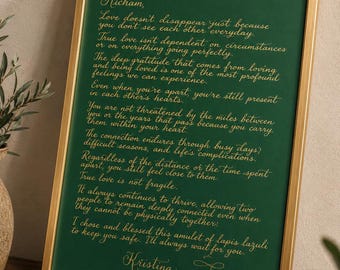 Hicham,
Love doesn't disappear just because
you don't see each other everyday.
True love isn't dependent on circumstances
or on everything going perfectly.
The deep gratitude that comes from loving
and being loved is one of the most profound
feelings we can experience.
Even when you're apart, you're still present
in each other's hearts.
You are not threatened by the miles between
you or the years that pass because you carry
them within your heart.
The connection endures through busy days,
difficult seasons, and life's complications.
Regardless of the distance or the time spent
apart, you still feel close to them.
True love is not fragile.
It always continues to thrive, allowing two
people to remain deeply connected even when
they cannot be physically together.
I chose and blessed this amulet of lapis lazuli
to keep you safe. I'll always wait for you.
Kristina